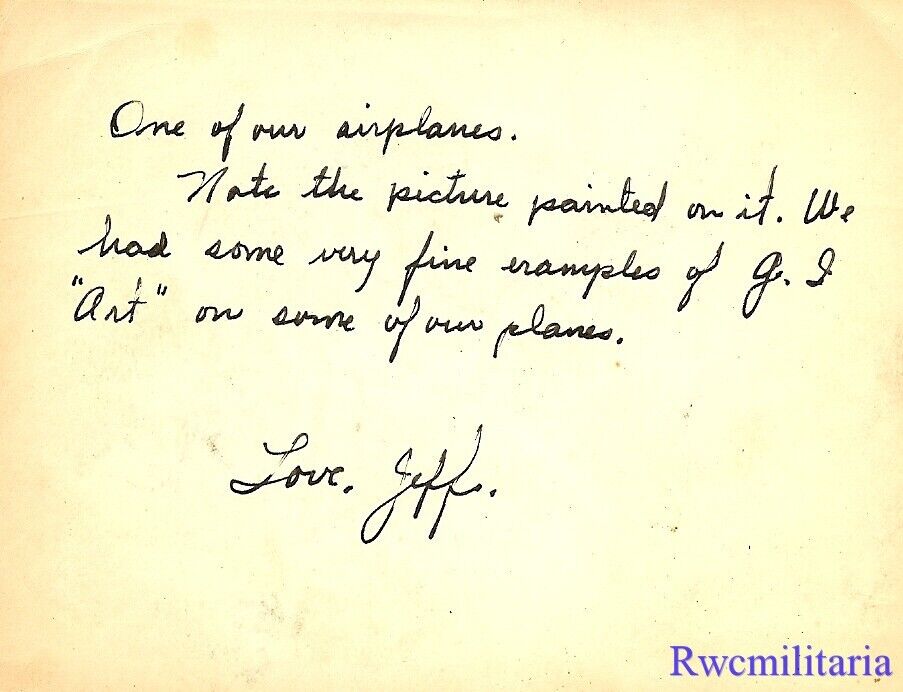 One of our airplanes.
Note the picture painted on it. We
had some very fine examples of G. I
"Art" on some of our planes.
Love, Jeff.
Rwcmilitaria